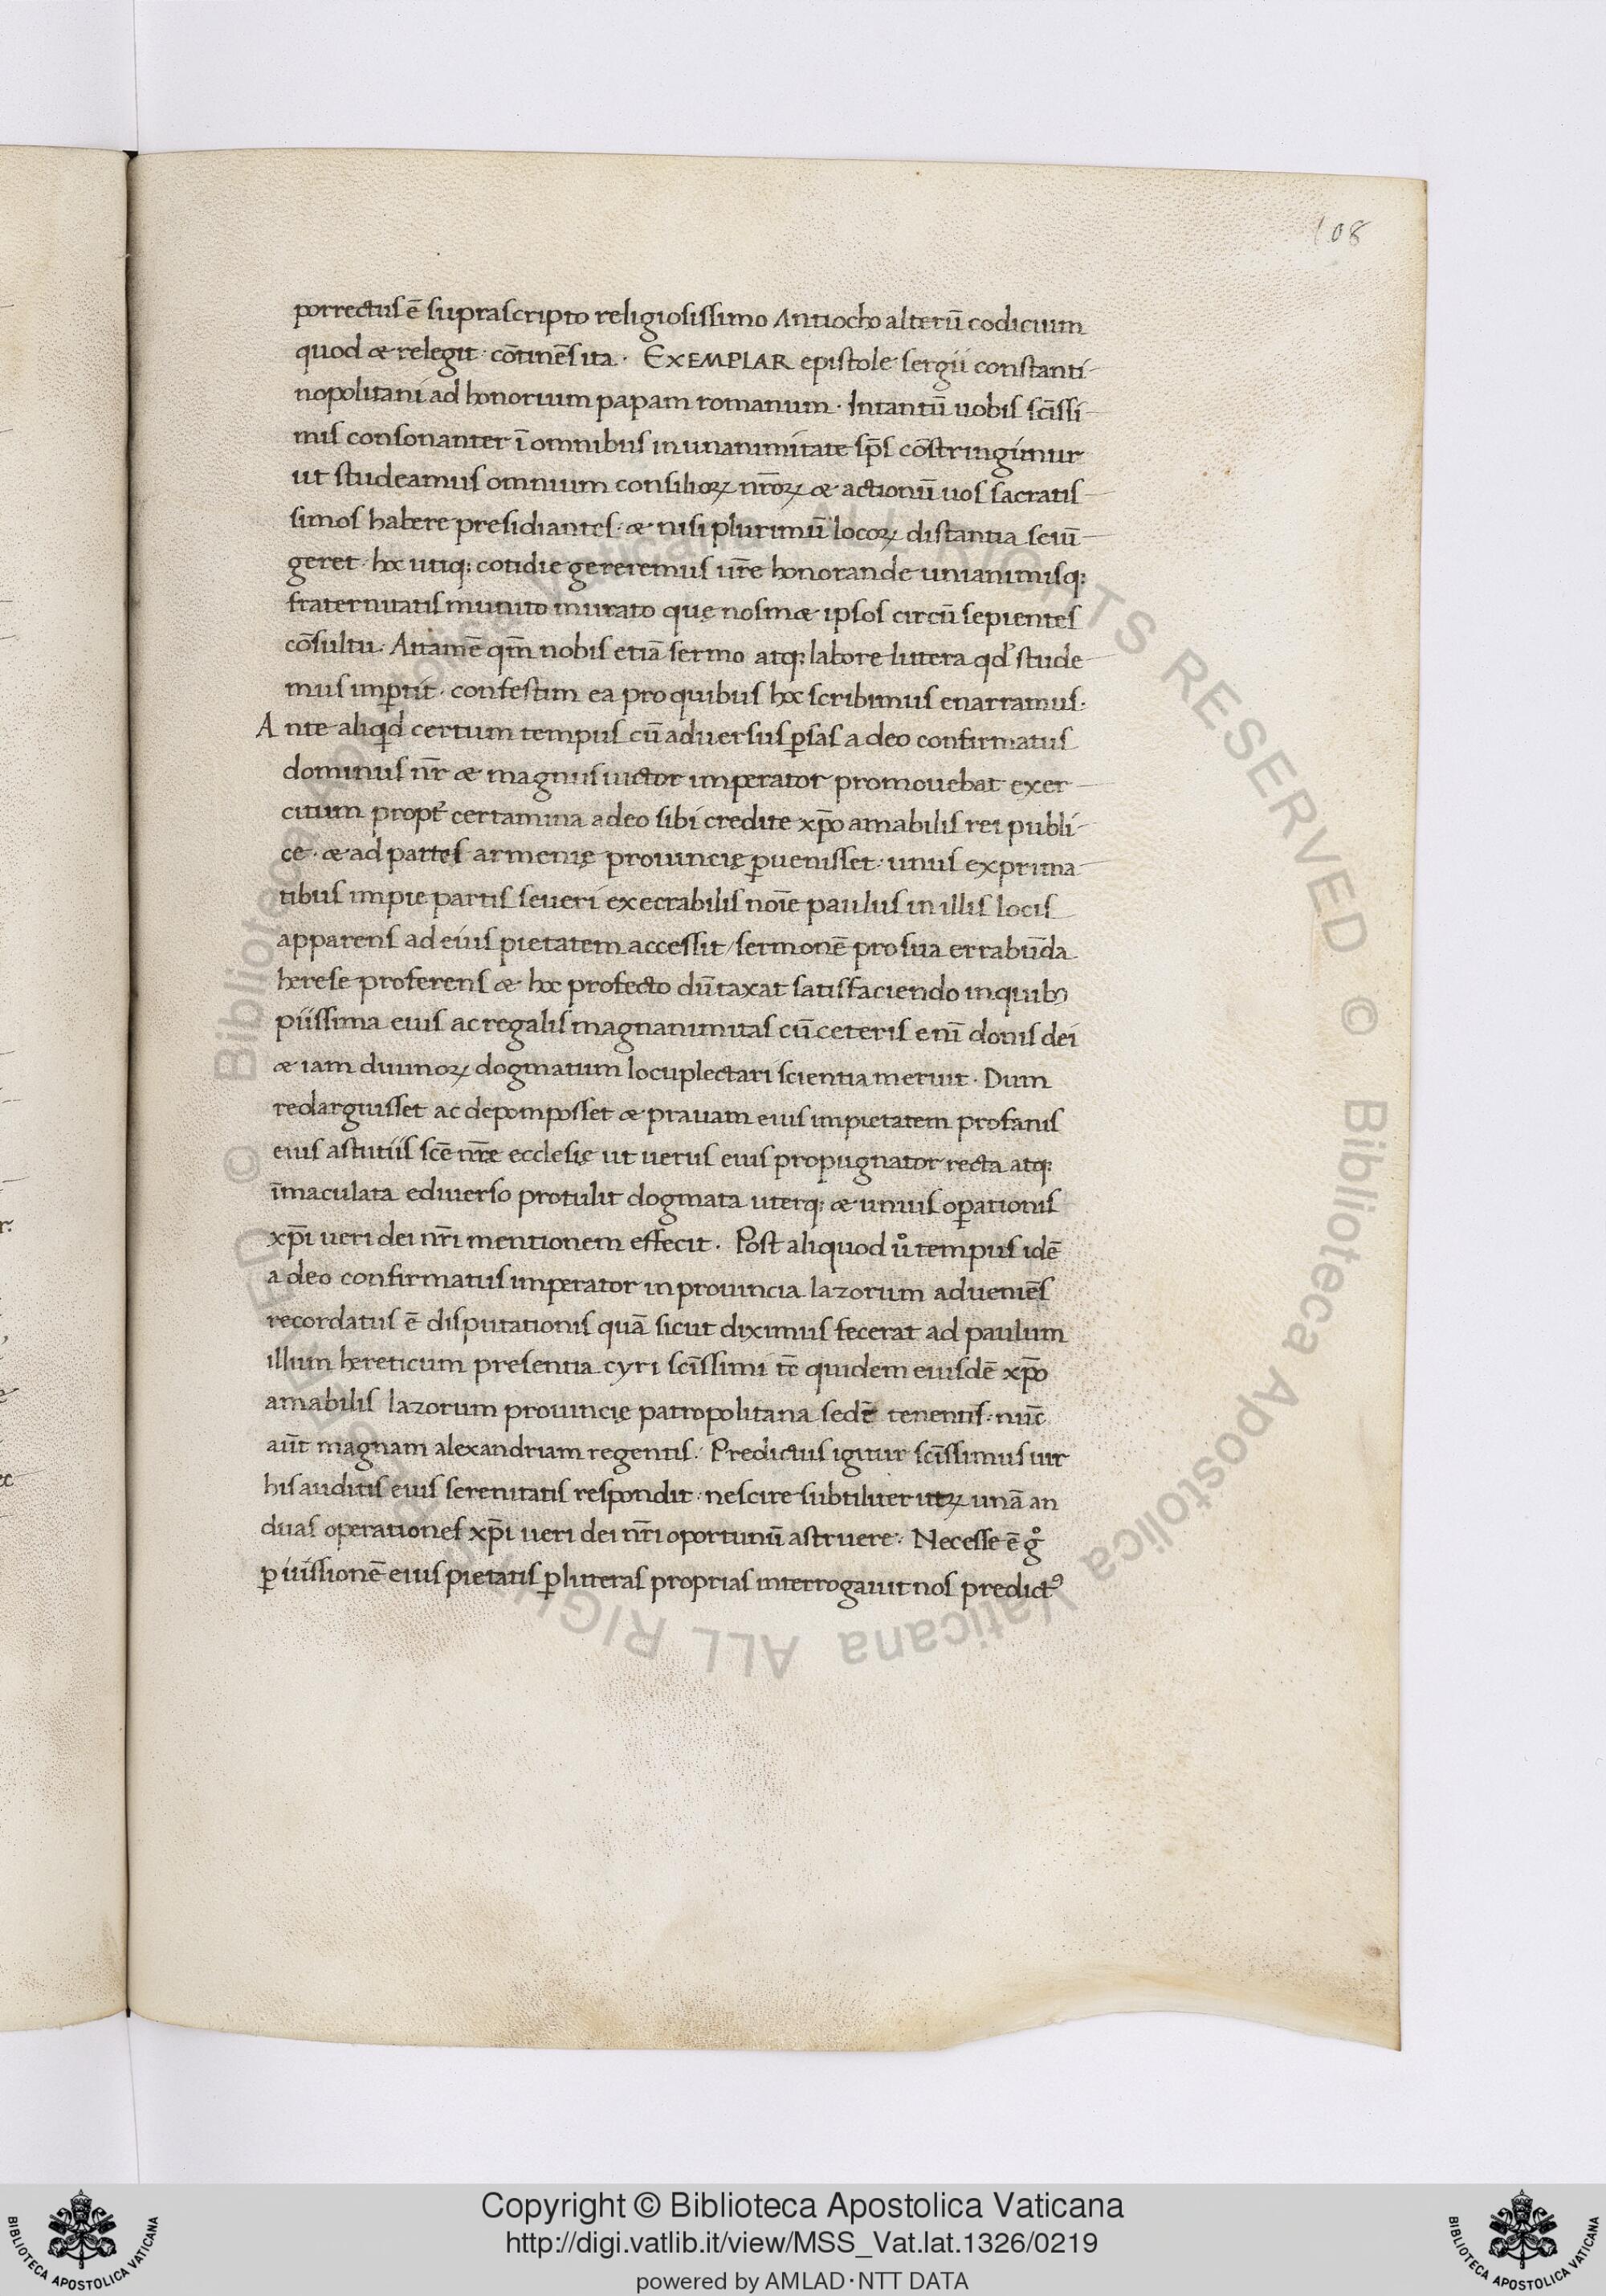 108
porrectus ē suprascripto religiosissimo Antiocho alterū codicium
quod & relegit · cōtinēs ita · EXEMPLAR epistole sergii constanti
nopolitani ad honorium papam romanum · Intantū uobis sc̄issi
mis consonanter ī omnibus in unanimitate sp̄s cōstringimur
ut studeamus omnium consilioꝝ nr̄oꝝ & actionū uos sacratis
simos habere presidiantes · & nisi plurimū locoꝝ distantia seiū
geret · hoc utiq; cotidie gereremus ur̄e honorande unianimisq;
fraternitatis munito murato quę nosm& ipsos circū sepientes
cōsultu · Attamē qm̄ nobis etiā sermo atq; labore littera qd' stude
mus imꝑtit · confestim ea pro quibus hoc scribimus enarramus ·
Ante aliqid certum tempus cū aduersus ꝑsas a deo confirmatus
dominus nr̄ & magnus uictor imperator promouebat exer
citum propt' certamina a deo sibi credite xp̄o amabilis rei publi
ce · & ad partes armenię prouincię ꝑuenisset · unus ex prima
tibus impie partis seueri execrabilis noīe paulus in illis locis
apparens ad eius pietatem accessit / sermonē pro sua errabūda
herese proferens & hoc profecto dūtaxat satisfaciendo in quibꝰ
piissima eius ac regalis magnanimitas cū ceteris enī donis dei
& iam diuinoꝝ dogmatum locuplectari scientia meruit · Dum
redarguisset ac depomposset & prauam eius impietatem profanis
eius astutiis sc̄e nr̄æ ecclesię ut uerus eius propugnator recta atq;
īmaculata ediuerso protulit dogmata uterq; & unius oꝑationis
xp̄i ueri dei nr̄i mentionem effecit · Post aliquod ů tempus idē
a deo confirmatus imperator in prouincia lazorum adueniēs
recordatus ē disputationis quā sicut diximus fecerat ad paulum
illum hereticum presentia cyri sc̄issimi tc̄ quidem eiusdē xp̄o
amabilis lazorum prouincię patropolitana sedē tenentis · nūc
aūt magnam alexandriam regentis · Predictus igitur sc̄issimus uir
his auditis eius serenitatis respondit · nescire subtiliter utꝝ unā an
duas operationes xp̄i ueri dei nr̄i oportunū astruere · Necesse ē g̊
ꝑ iussionē eius pietatis ꝑ litteras proprias interrogauit nos predictꝰ
© Biblioteca Apostolica Vaticana ALL RIGHTS RESERVED © Biblioteca Apostolica Vaticana ALL RIGHTS RESERVED
Copyright © Biblioteca Apostolica Vaticana
http://digi.vatlib.it/view/MSS_Vat.lat.1326/0219
powered by AMLAD·NTT DATA
BIBLIOTECA APOSTOLICA VATICANA
BIBLIOTECA APOSTOLICA VATICANA